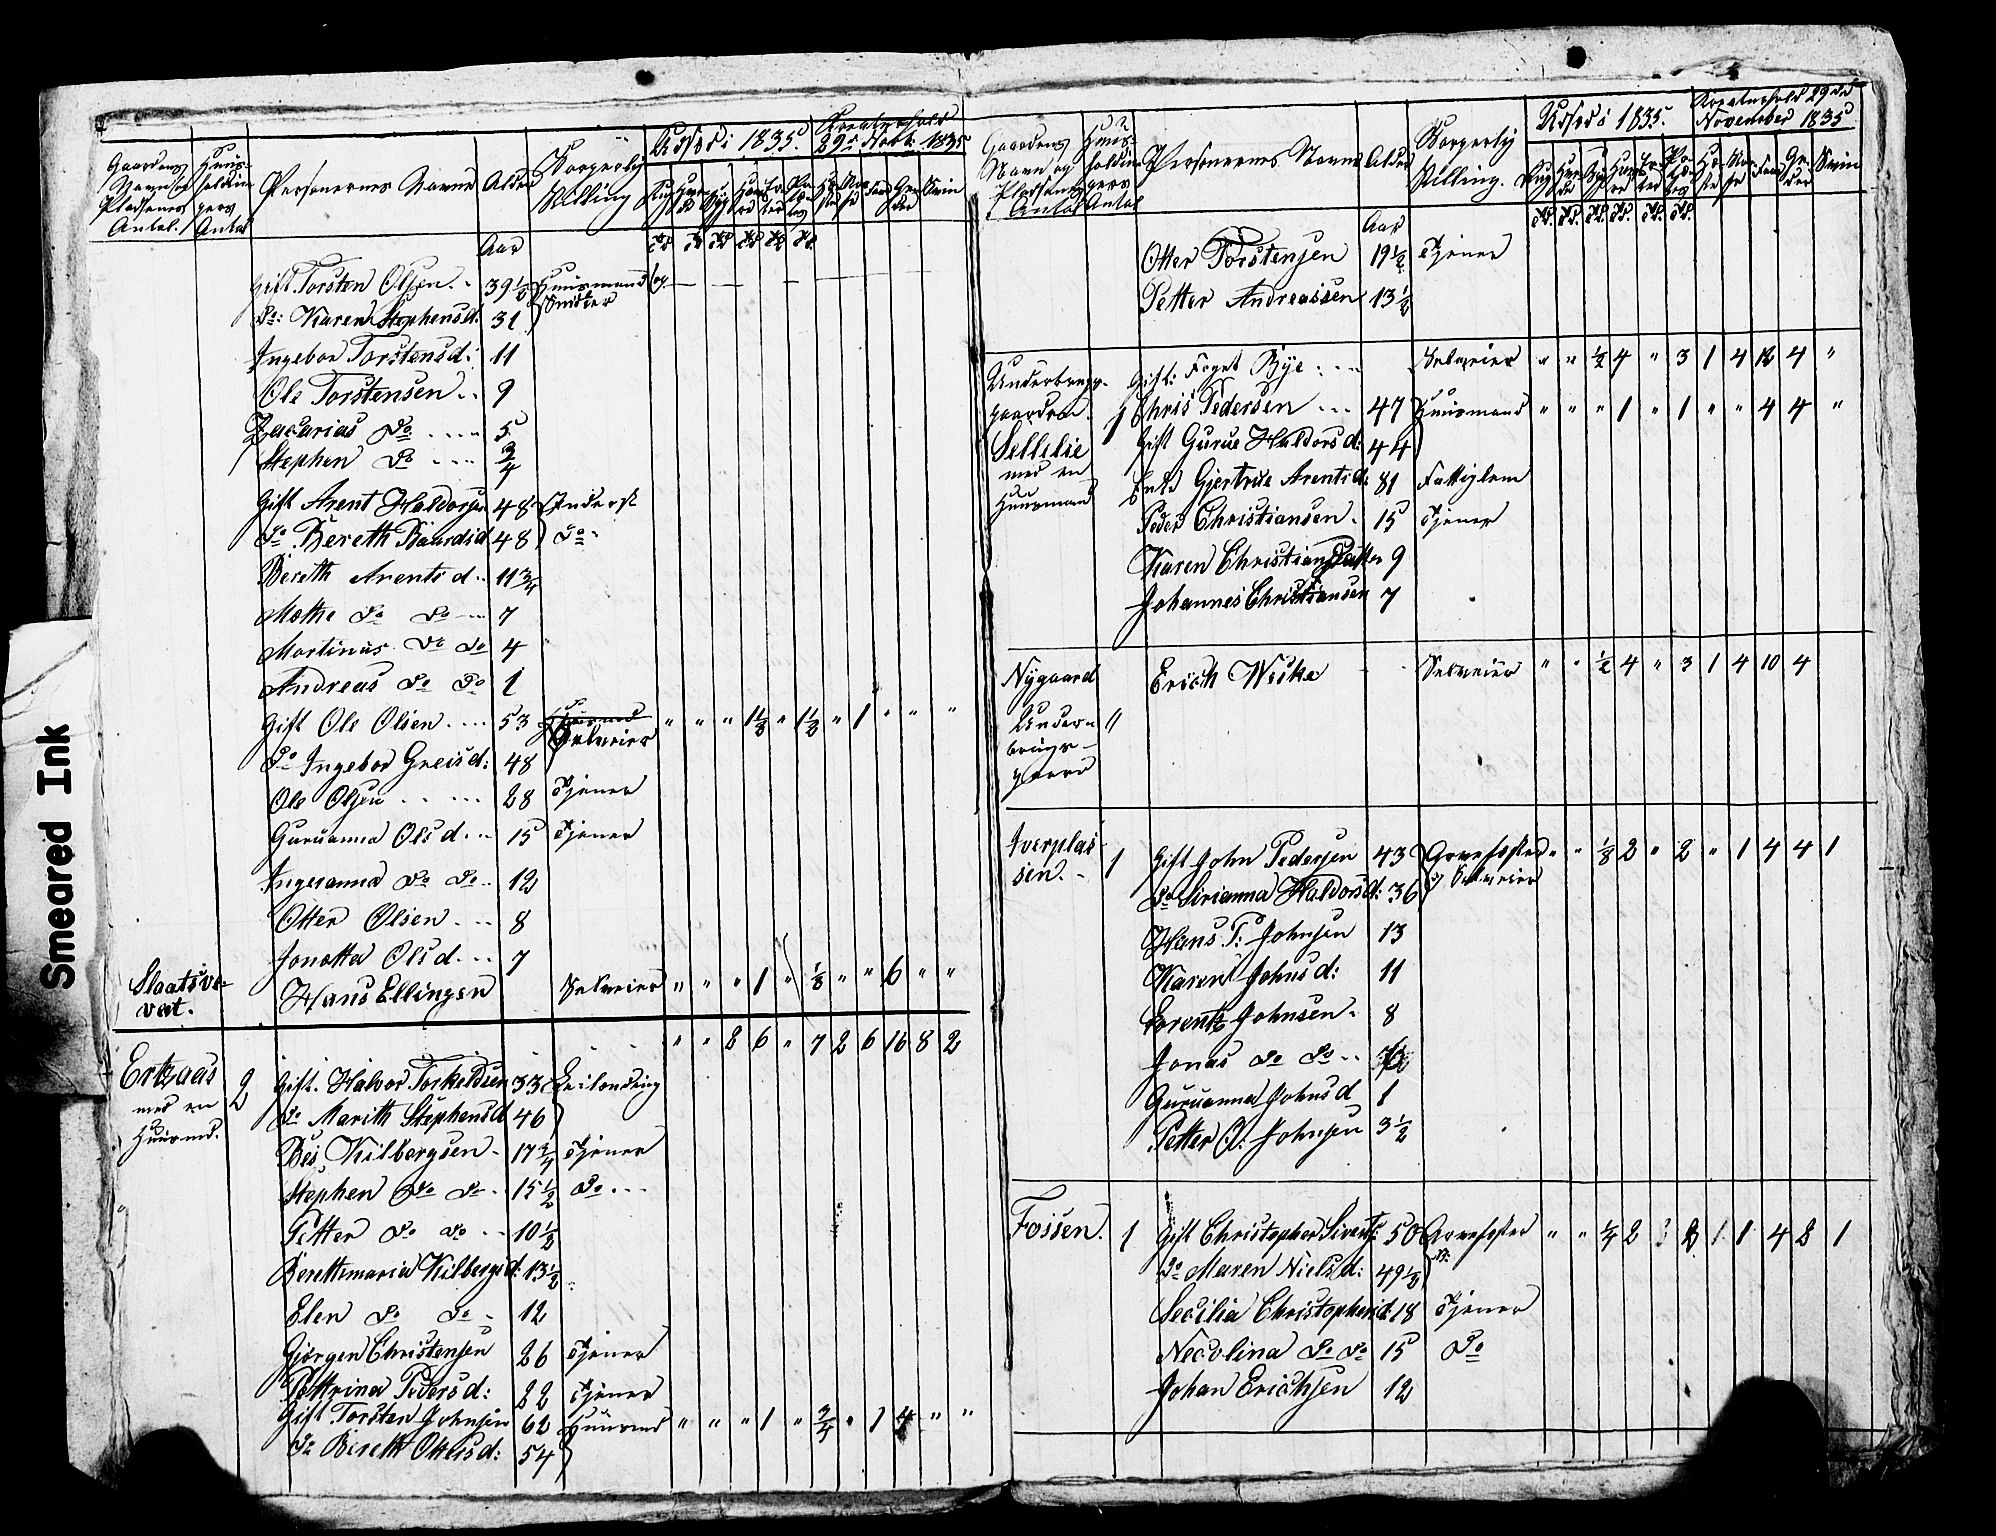 Smeared Ink
Gaardens Navn og Pladsenes Antal.
Huus-holdingers Antal
Personernes Navne
Alder
Borgerlig Stilling
Udsæd i 1835.
Kreaturhold 29de Novb: 1835
Aar
Gift Torsten Olsen 39 1/2 Huusmand og Snidker
Do: Karen Stephensd: 31
Ingebor Torstensd: 11
Ole Torstensen 9
Zacarias Do 5
Stephen Do 3/4
Gift Arent Haldorsen 48 Inderst
Do Bereth Baardsd 48 Do
Bereth Arentsd 11 3/4
Mette Do Do 7
Martinus Do Do 4
Andreas Do Do 1
Gift Ole Olsen 53 Selveier " " " 1 1/2 " 1 1/2 " 1 " " "
Do Ingebor Greisd: 48
Ole Olsen 28 Tjener
Guruanna Olsd 15 Tjener
Ingeranna Do Do 12
Otter Olsen 8
Jonetta Olsd 7
Hans Ellingsen Selveier " " " 1 " 1/8 " " 6 " "
" " 8 6 " 7 2 6 16 8 2
Ertzaas med en Huusmd. 2 Gift. Halvor Torkeldsen 33 Leilending
Do Marith Stephensd 46
Kilbergsen 17 3/4 Tjener
Stephen Do Do 15 1/2 Do
Petter Do Do 10 1/2
Berethmaria Kilbergsd: 13 1/2
Elen Do Do 12
Gjørgen Christensen 26 Tjener
Pettrina Pedersd: 22 Tjener
Gift Torsten Johnsen 62 Huusmd " " " 1 " 3/4 " 1 4 " "
Do Bereth Ottersd: 54
Gaardens Navn og Pladsenes Antal
Huus-holdingers Antal
Personernes Navne
Alder
Borgerlig Stilling.
Udsæd i 1835.
Kreaturhold 29de November 1835
Aar
Otter Torstensen 19 1/2 Tjener
Petter Andreassen 13 1/2
Gift: Foget Bye Selveier " " 1/2 4 " 3 1 4 12 4 "
Underbrugs-gaarden Sellelie med en Huusmand 1 Chris Pedersen 47 Huusmand " " " 1 " 1 " " 4 4 "
Gift Gurue Haldorsd: 44
Enke Gjertrue Arentsd: 81 Fattiglem
Peder Christiansen 15 Tjener
Karen Christiansdatter 9
Johannes Christiansen 7
Nygaard Underbrugsgaard " Erich Wiske Selveier " " 1/2 4 " 3 1 4 10 4
Iverplassen. 1 Gift John Pedersen 43 Selveier " " 1/8 2 " 2 " 1 4 4 1
Do Sirianna Haldorsd: 36
Hans P: Johnsen 13
Karen Johnsd: 11
Lorentz Johnsen 8
Jonas Do Do
Guruanna Johnsd 1
Petter O: Johnsen 3 1/2
Fossen. 1 Gift Christopher Siverts: 50 " " 1/4 2 3 2 1 1 4 8 1
Do Maren Nielsd: 49 1/2
Secilia Christophersd: 18 Tjener
Necolina Do Do 15 Do
Johan Erichsen 12